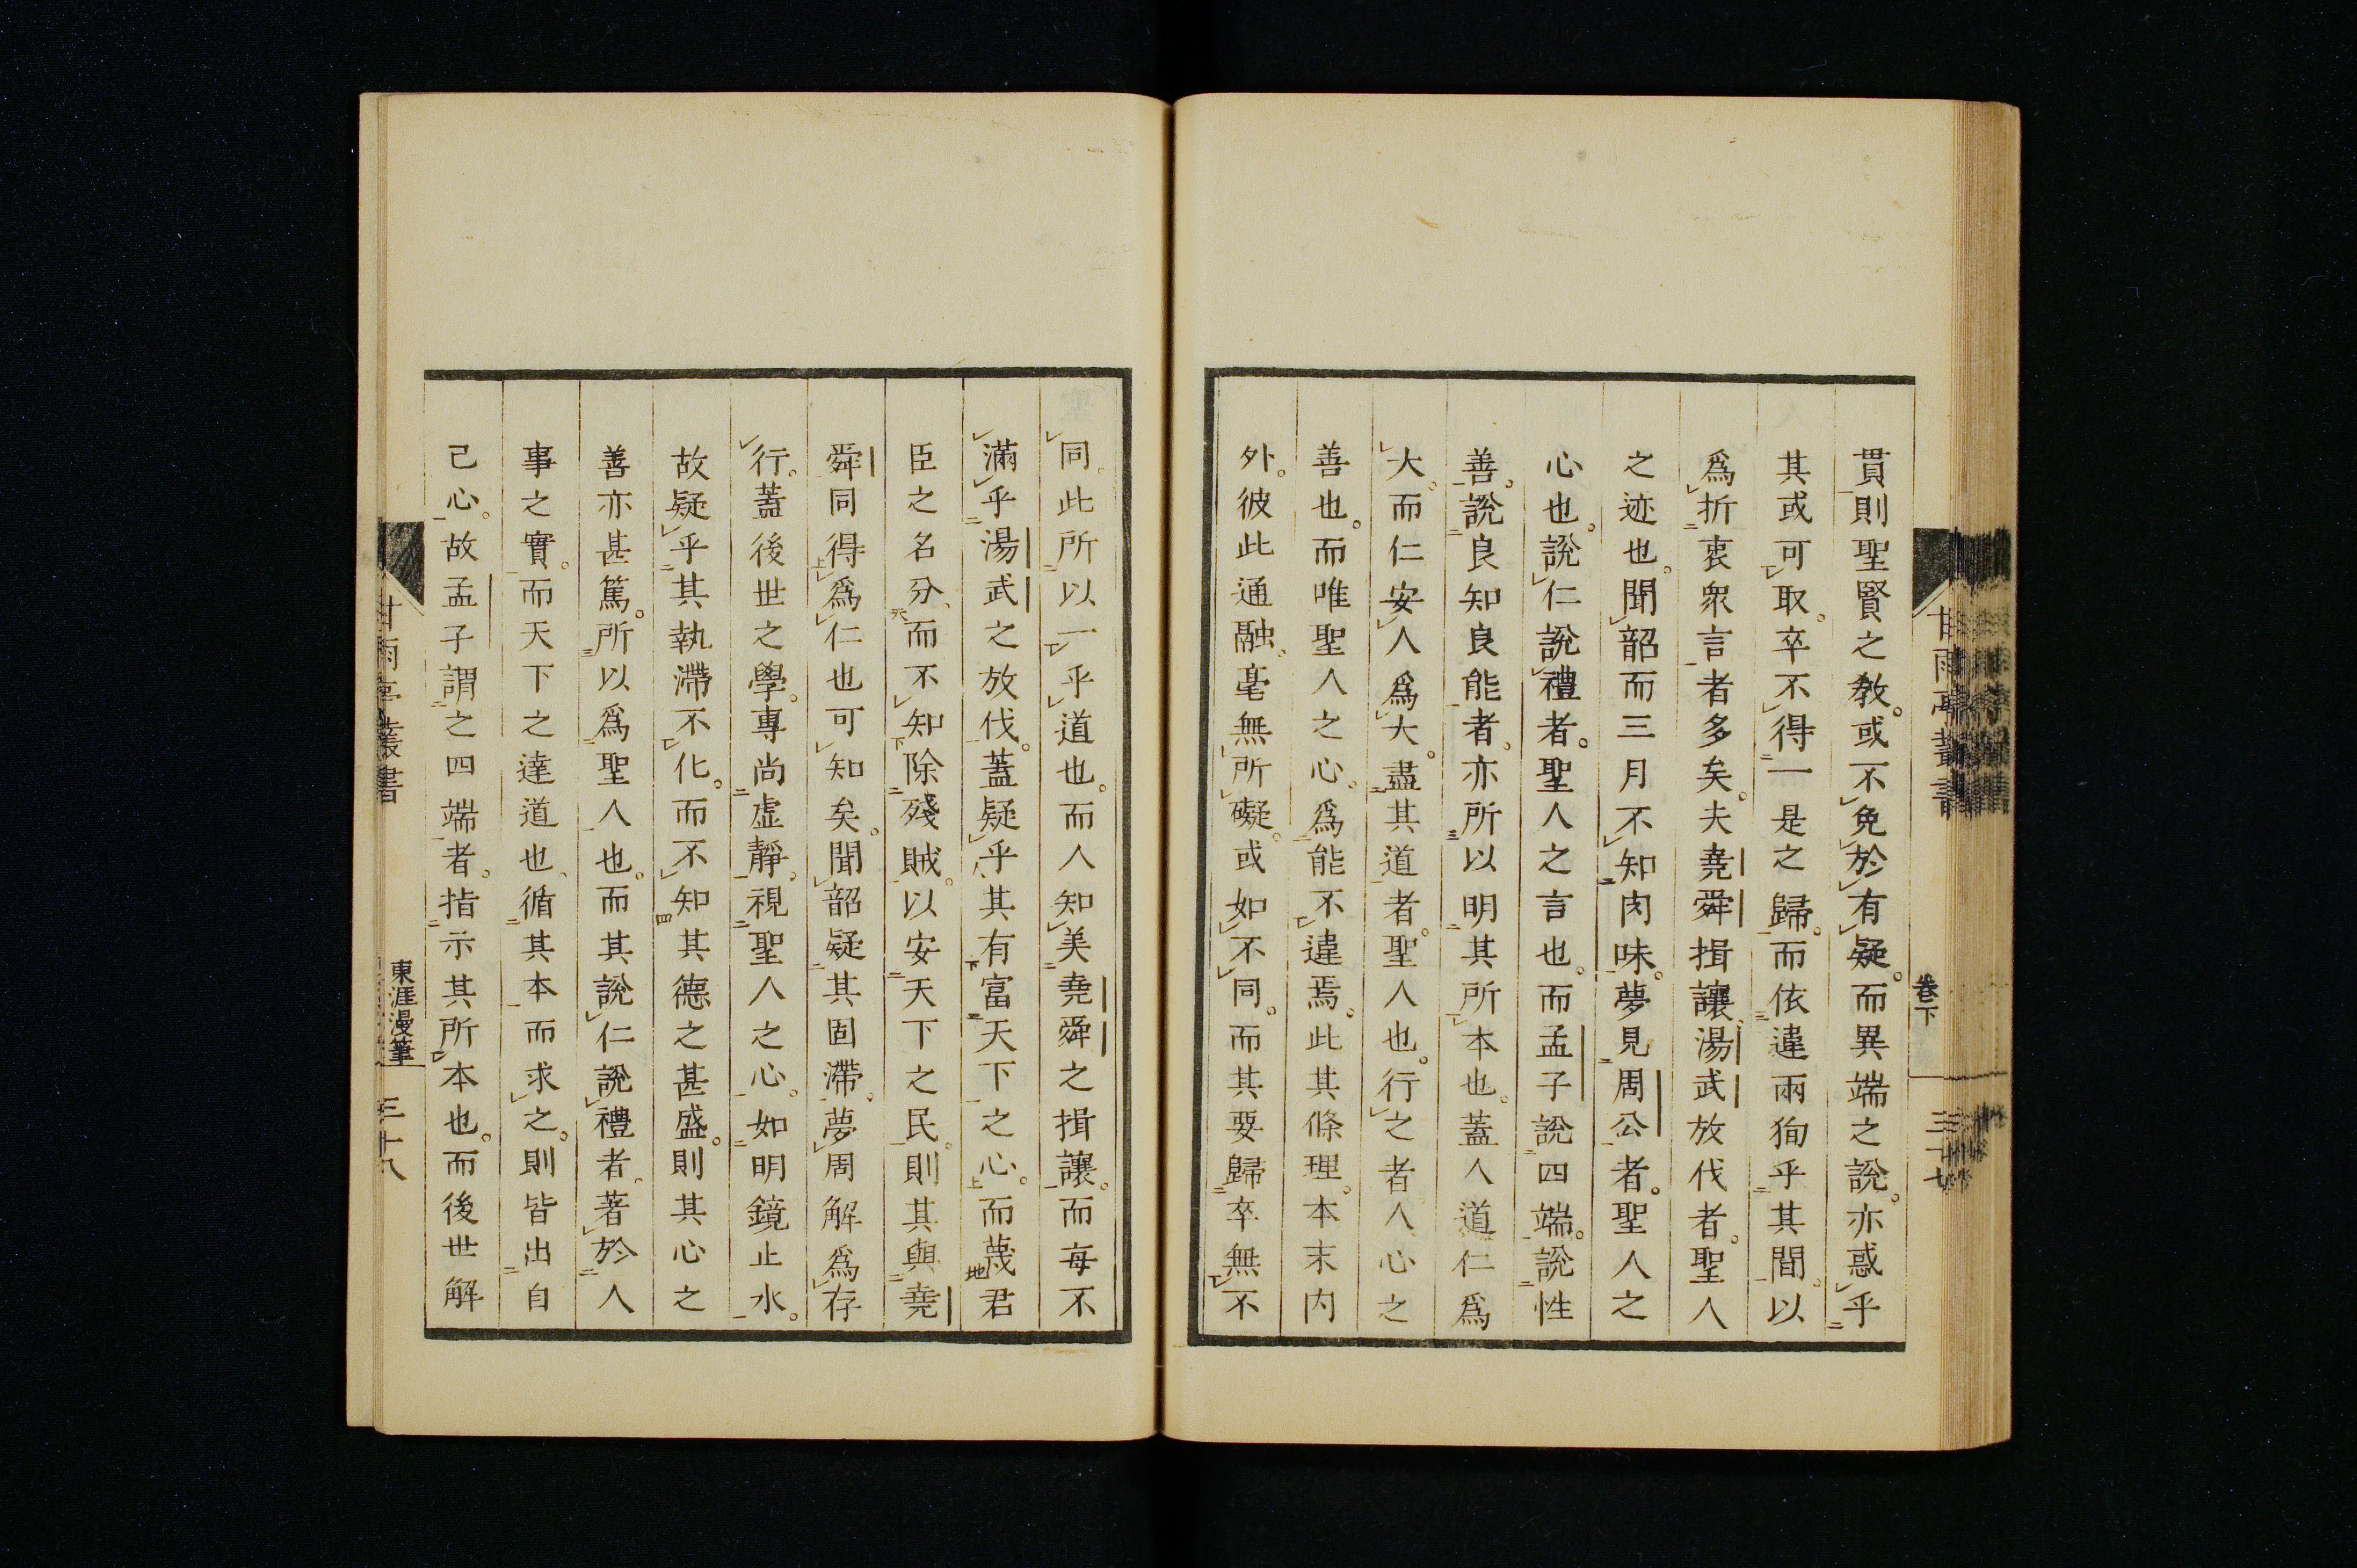 貫則聖賢之教。或不免於有疑。而異端之說。亦惑乎
其或可取。卒不得一是之歸。而依違兩徇乎其間。以
爲折衷衆言者多矣。夫堯舜揖讓、湯武放伐者。聖人
之迹也。聞韶而三月不知肉味。夢見周公者。聖人之
心也。說仁說禮者。聖人之言也。而孟子說四端。說性
善。說良知良能者。亦所以明其所本也。蓋人道仁爲
大。而仁安人爲大。盡其道者。聖人也。行之者人心之
善也。而唯聖人之心。爲能不違焉。此其條理。本末內
外。彼此通融。毫無所礙。或如不同。而其要歸卒無不
卷下
三十七
同。此所以一乎道也。而人知美堯舜之揖讓。而每不
滿乎湯武之放伐。蓋疑乎其有富天下之心。而蔑君
臣之名分、而不知除殘賊。以安天下之民。則其與堯
舜同得爲仁也可知矣。聞韶疑其固滯。夢周解爲存
行。蓋後世之學。專尚虛靜。視聖人之心。如明鏡止水。
故疑乎其執滯不化。而不知其德之甚盛。則其心之
善亦甚篤。所以爲聖人也。而其說仁說禮者。著於人
事之實。而天下之達道也、循其本而求之。則皆出自
己心。故孟子謂之四端者。指示其所本也。而後世解
甘雨亭叢書
東涯漫筆
三十八